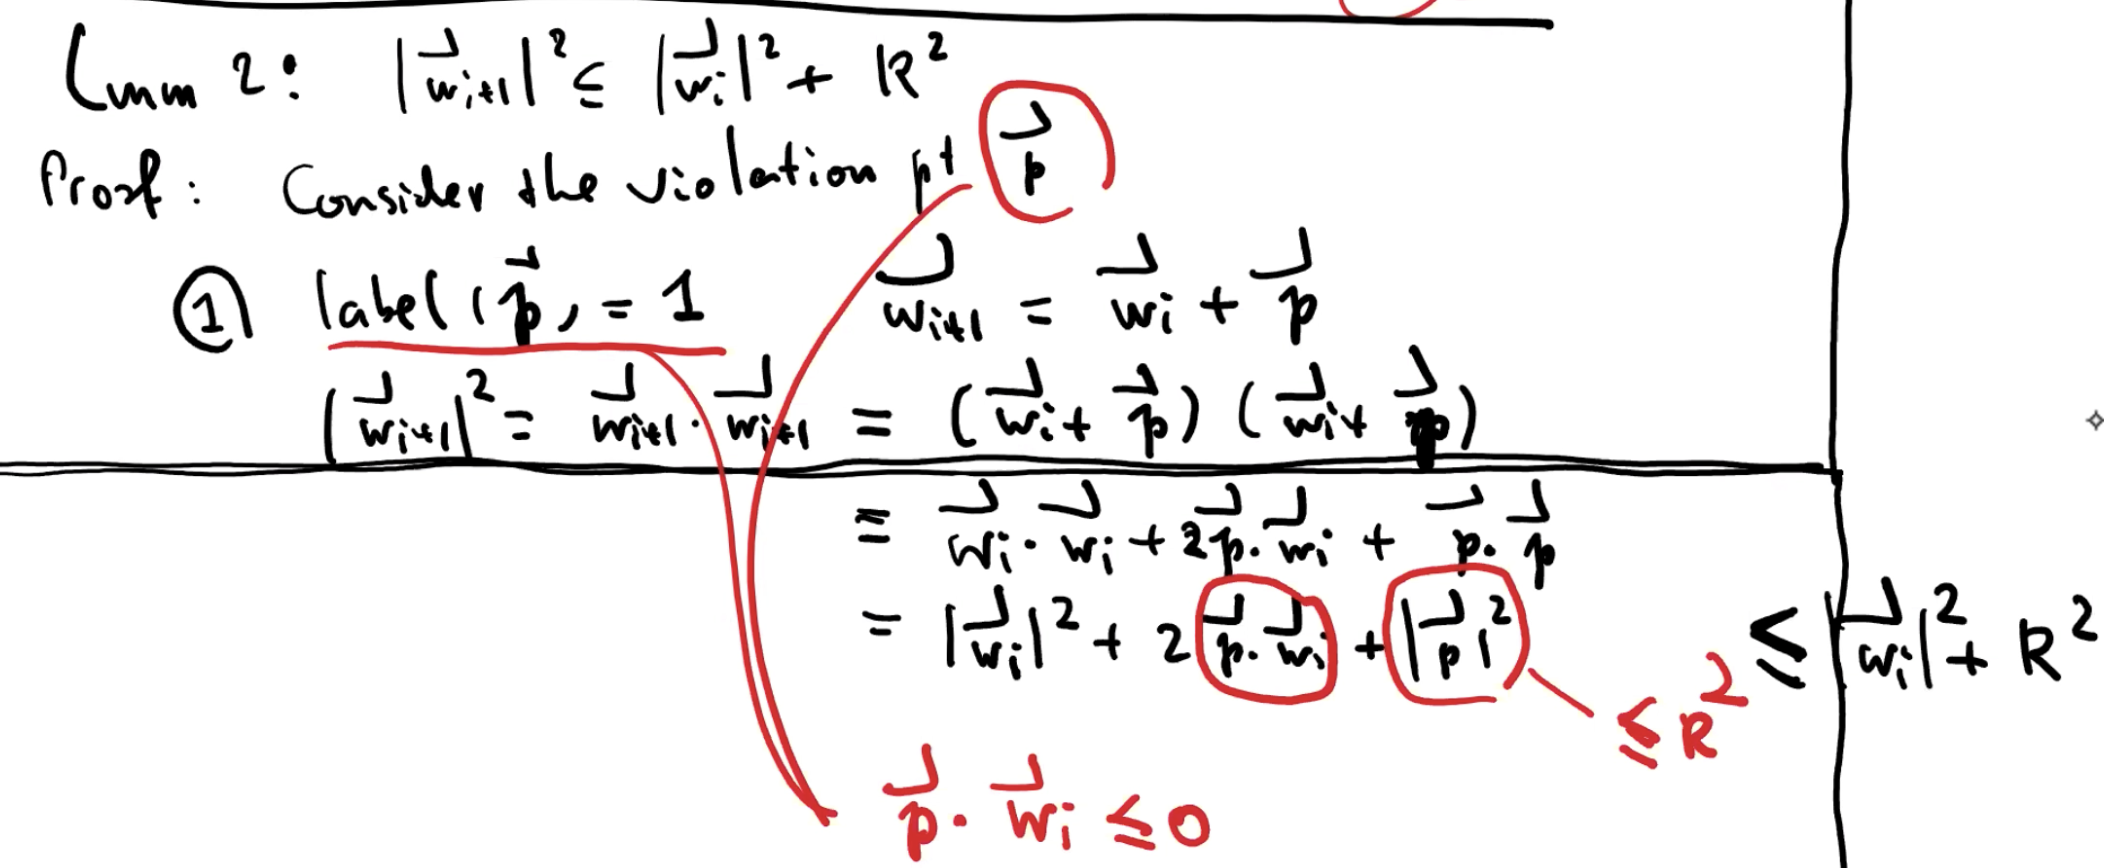 Lmm 2: |w⃗ᵢ₊₁|² ≤ |w⃗ᵢ|² + R²
Proof: Consider the violation pt p⃗
① label(p⃗) = 1 w⃗ᵢ₊₁ = w⃗ᵢ + p⃗
|w⃗ᵢ₊₁|² = w⃗ᵢ₊₁ · w⃗ᵢ₊₁ = (w⃗ᵢ + p⃗) (w⃗ᵢ + p⃗)
= w⃗ᵢ · w⃗ᵢ + 2p⃗ · w⃗ᵢ + p⃗ · p⃗
= |w⃗ᵢ|² + 2 p⃗ · w⃗ᵢ + |p⃗|² ≤ |w⃗ᵢ|² + R²
≤ R²
p⃗ · w⃗ᵢ ≤ 0